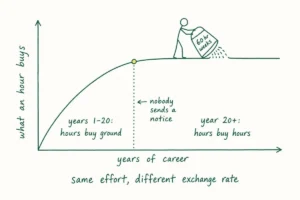 what an hour buys
60 hr
weeks
nobody
sends a
notice
years 1-20:
hours buy ground
year 20+:
hours buy hours
years of career
Same effort, different exchange rate